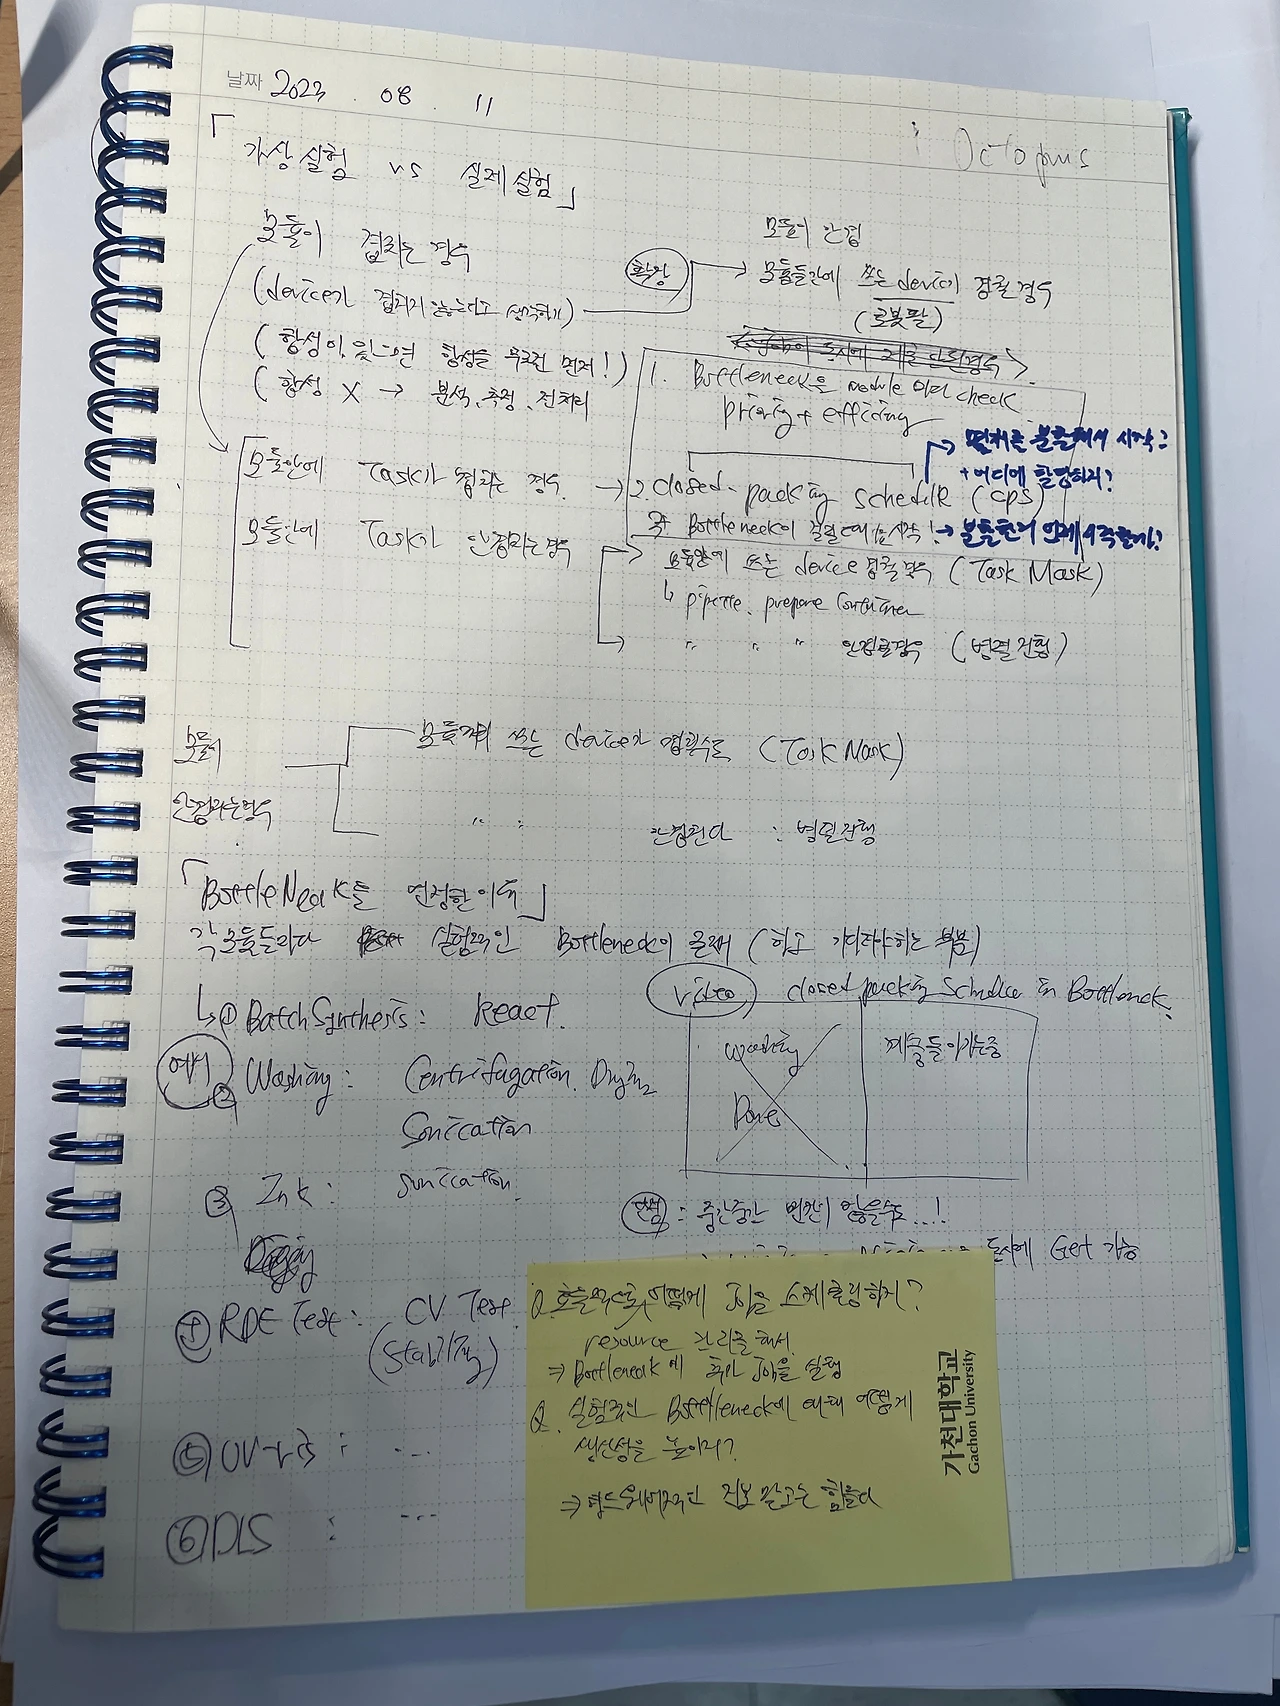 날짜 2023 . 08 . 11
: Octopus
「가상실험 vs 실제실험」
모듈이 겹치는 경우
(device가 겹치지 않는다고 생각하기)
(합성이 있으면 합성을 무조건 먼저!)
(합성 X → 분석, 측정, 전처리
확장
모듈이 안겹
모듈들간에 쓰는 device가 겹칠 경우
(로봇팔)
1. Bottleneck을 module 마다 check
priority + efficiency
모듈안에 Task가 겹치는 경우
→ 2. closed-packing schedule (CPS)
→ 먼저 분출해서 시작?
+ 어디에 할당하지?
3. Bottleneck이 걸릴때
모듈안에 Task가 안겹치는 경우
모듈안에 쓰는 device 겹칠 경우 (Task Mask)
↳ pipette, prepare Container
" " " 안겹칠경우 (병렬진행)
모듈이
안겹치는경우
모듈끼리 쓰는 device가 겹칠수도 (Task Mask)
" " 안겹친다 : 병렬진행
「BottleNeck를 선정한 이유」
각 모듈들마다 실험적인 Bottleneck이 존재 (하고 기다려야하는 부분)
video closed packing schedule in Bottleneck.
↳ ① BatchSynthesis : React.
예시
② Washing : Centrifugation. Drying
Sonication
Washing
Done
계속 돌아가는중
③ Ink : Sonication.
단점 : 중간중간 빈칸이 있을수도...!
동시에 Get 가능
④ RDE Test : CV Test
(Stability)
⑤ UV-vis : ...
⑥ DLS : ...
Q. 효율적으로 어떻게 Job을 스케쥴링하지?
resource 관리를 해서.
⇒ Bottleneck에 추가 Job을 실행
Q. 실험적인 Bottleneck에 의해 어떻게
생산성을 높이지?
⇒ 하드웨어적인 진보 말고는 힘들다
가천대학교
Gachon University